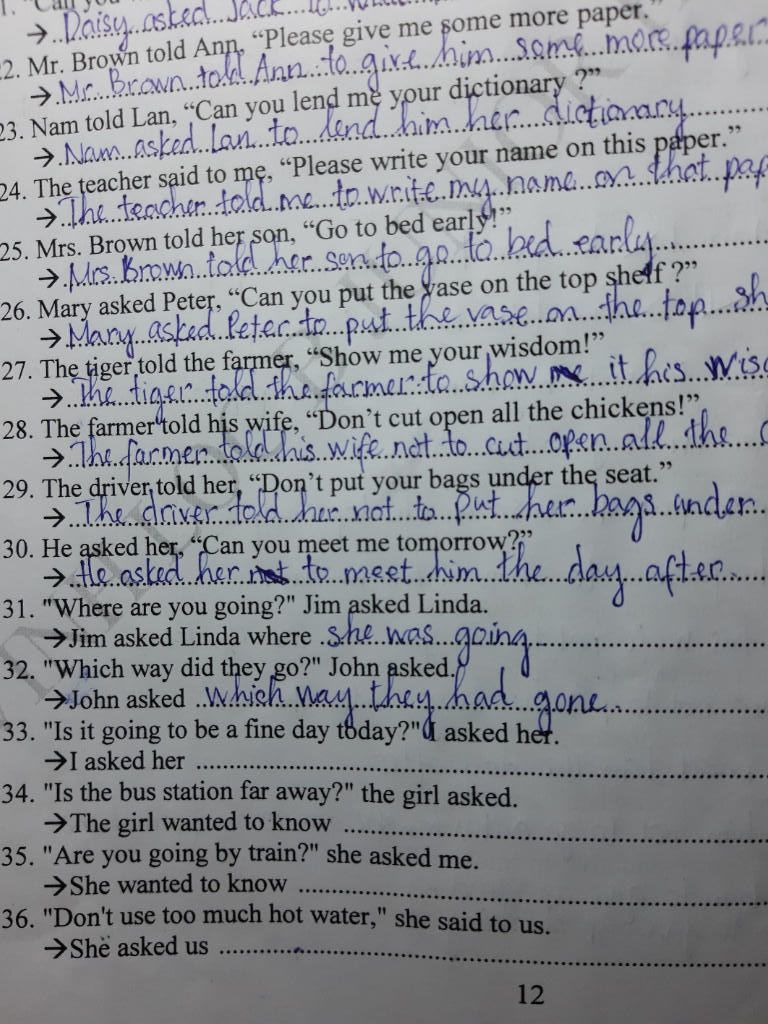 1. "Can you
→ Daisy asked Jack to
22. Mr. Brown told Ann, “Please give me some more paper.”
→ Mr. Brown told Ann to give him some more paper
23. Nam told Lan, “Can you lend me your dictionary ?”
→ Nam asked Lan to lend him her dictionary
24. The teacher said to me, “Please write your name on this paper.”
→ The teacher told me to write my name on that pap
25. Mrs. Brown told her son, “Go to bed early!”
→ Mrs. Brown told her son to go to bed early
26. Mary asked Peter, “Can you put the vase on the top shelf ?”
→ Mary asked Peter to put the vase on the top sh
27. The tiger told the farmer, “Show me your wisdom!”
→ The tiger told the farmer to show it his wis
28. The farmer told his wife, “Don’t cut open all the chickens!”
→ The farmer told his wife not to cut open all the
29. The driver told her, “Don’t put your bags under the seat.”
→ The driver told her not to put her bags under
30. He asked her, “Can you meet me tomorrow?”
→ He asked her to meet him the day after
31. "Where are you going?" Jim asked Linda.
→Jim asked Linda where she was going
32. "Which way did they go?" John asked.
→John asked which way they had gone
33. "Is it going to be a fine day today?" I asked her.
→I asked her
34. "Is the bus station far away?" the girl asked.
→The girl wanted to know
35. "Are you going by train?" she asked me.
→She wanted to know
36. "Don't use too much hot water," she said to us.
→She asked us
12